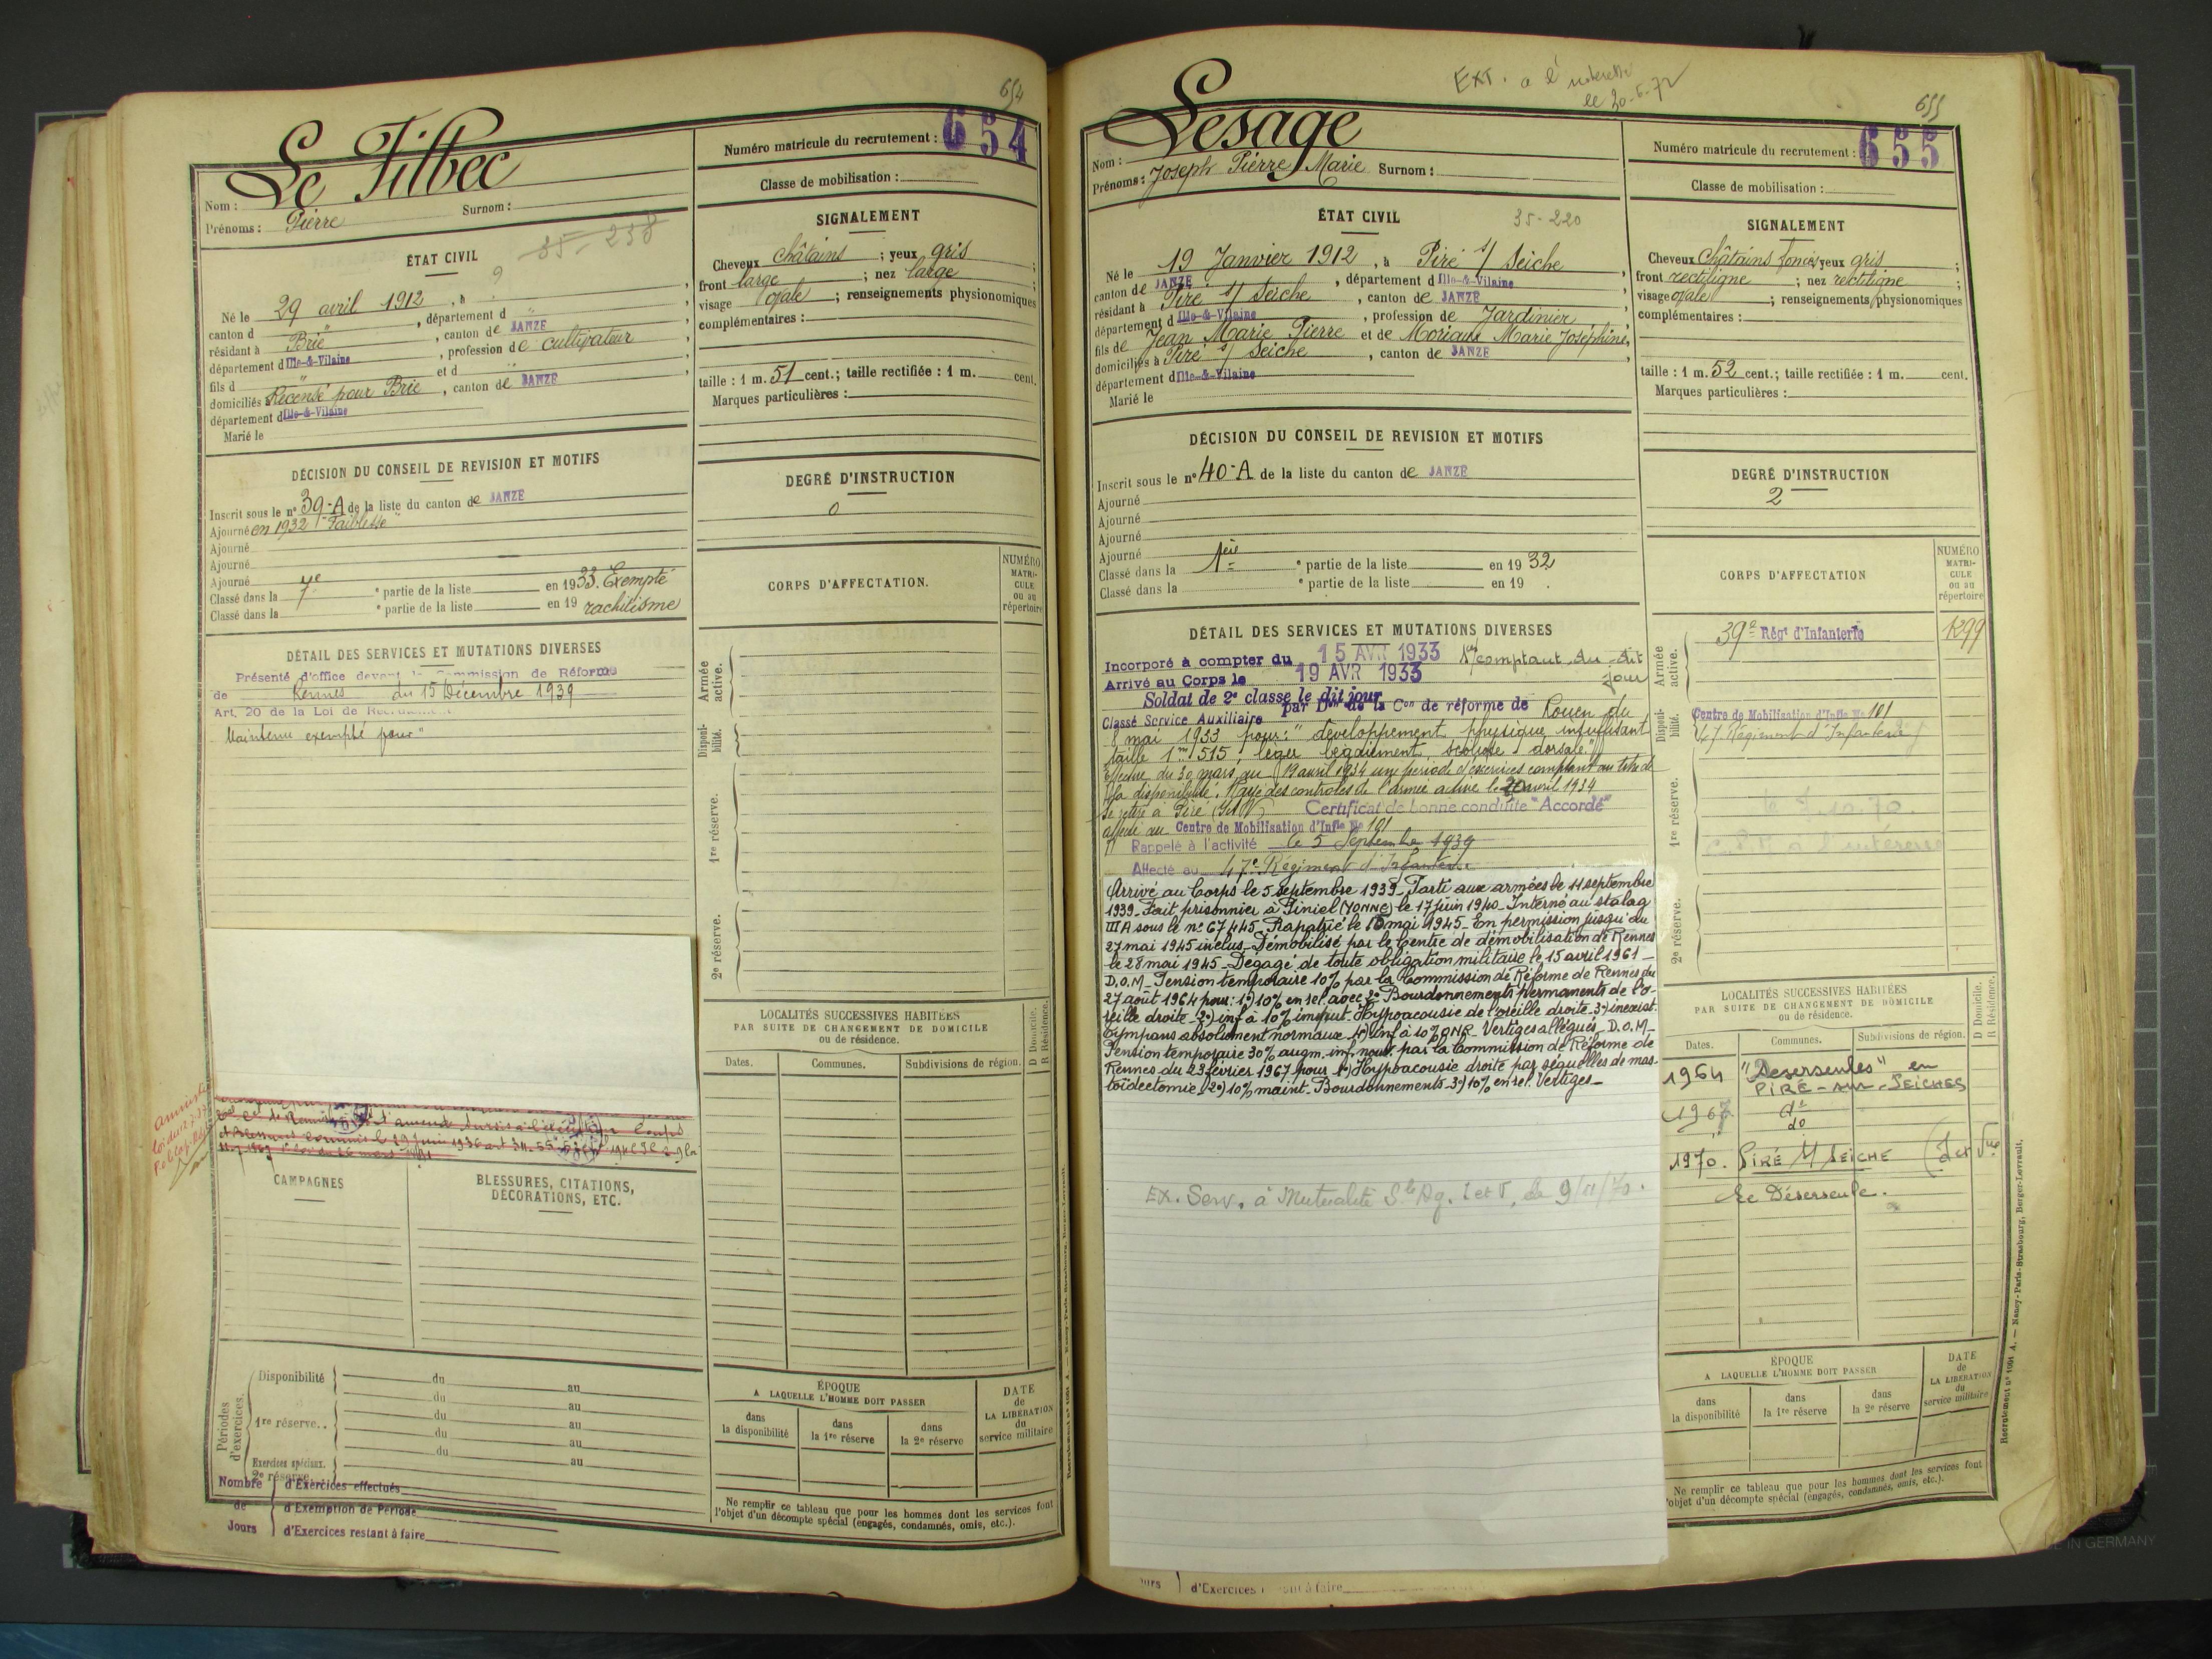 654
Le Tilbec
Nom :
Prénoms : Pierre Surnom :
Numéro matricule du recrutement : 654
Classe de mobilisation :
ÉTAT CIVIL
35-238
Né le 29 avril 1912, à ?
canton d " , département d "
résidant à Brie , canton de JANZÉ
département d Ille-&-Vilaine , profession de cultivateur
fils d " et d "
domiciliés Recensé pour Brie , canton de JANZÉ
département d Ille-&-Vilaine
Marié le
SIGNALEMENT
Cheveux châtains ; yeux gris ;
front large ; nez large ;
visage ovale ; renseignements physionomiques
complémentaires :
taille : 1 m. 51 cent.; taille rectifiée : 1 m. cent.
Marques particulières :
DÉCISION DU CONSEIL DE REVISION ET MOTIFS
Inscrit sous le n° 39-A de la liste du canton de JANZÉ
Ajourné en 1932 "Faiblesse"
Ajourné
Ajourné
Ajourné
Classé dans la 7e ° partie de la liste en 1933. Exempté
Classé dans la ° partie de la liste en 19 rachitisme
DEGRÉ D'INSTRUCTION
0
CORPS D'AFFECTATION.
NUMÉRO MATRI-CULE ou au répertoire
Armée active.
Disponi-bilité.
1re réserve.
2e réserve.
DÉTAIL DES SERVICES ET MUTATIONS DIVERSES
Présenté d'office devant la Commission de Réforme
de Rennes du 15 Décembre 1939
Art. 20 de la Loi de Recrutement
Maintenu exempté pour "
Amnistié
loi du 12.7.37
LOCALITÉS SUCCESSIVES HABITÉES
PAR SUITE DE CHANGEMENT DE DOMICILE
ou de résidence.
D Domicile.
R Résidence.
Dates. Communes. Subdivisions de région.
CAMPAGNES
BLESSURES, CITATIONS,
DÉCORATIONS, ETC.
Périodes d'exercices.
Disponibilité du au
du au
1re réserve.. du au
du au
Exercices spéciaux. du au
2e réserve...
Nombre d'Exercices effectués
de d'Exemption de Période
Jours d'Exercices restant à faire
ÉPOQUE
A LAQUELLE L'HOMME DOIT PASSER
dans la disponibilité
dans la 1re réserve
dans la 2e réserve
DATE de LA LIBÉRATION du service militaire
Ne remplir ce tableau que pour les hommes dont les services font
l'objet d'un décompte spécial (engagés, condamnés, omis, etc.).
EXT. a l'
le 20-6-72
655
Lesage
Nom :
Prénoms : Joseph Pierre Marie Surnom :
Numéro matricule du recrutement : 655
Classe de mobilisation :
ÉTAT CIVIL
35-220
Né le 19 Janvier 1912, à Piré s/ Seiche
canton de JANZÉ , département d Ille-&-Vilaine
résidant à Piré s/ Seiche , canton de JANZÉ
département d Ille-&-Vilaine , profession de Jardinier
fils de Jean Marie Pierre et de Moriaux Marie Joséphine,
domiciliés à Piré s/ Seiche , canton de JANZÉ
département d Ille-&-Vilaine
Marié le
SIGNALEMENT
Cheveux châtains foncés yeux gris ;
front rectiligne ; nez rectiligne ;
visage ovale ; renseignements physionomiques
complémentaires :
taille : 1 m. 52 cent.; taille rectifiée : 1 m. cent.
Marques particulières :
DÉCISION DU CONSEIL DE REVISION ET MOTIFS
Inscrit sous le n° 40-A de la liste du canton de JANZÉ
Ajourné
Ajourné
Ajourné
Ajourné
Classé dans la 1ère ° partie de la liste en 1932
Classé dans la ° partie de la liste en 19 .
DEGRÉ D'INSTRUCTION
2
CORPS D'AFFECTATION
NUMÉRO MATRI-CULE ou au répertoire
Armée active.
39e Régt d'Infanterie
1299
Disponi-bilité.
Centre de Mobilisation d'Infie No 101
47. Régiment d'Infanterie
1re réserve.
2e réserve.
DÉTAIL DES SERVICES ET MUTATIONS DIVERSES
Incorporé à compter du 15 AVR 1933 comptant du dit jour
Arrivé au Corps le 19 AVR 1933
Soldat de 2e classe le dit jour
Classé Service Auxiliaire par Don de la Con de réforme de Rouen du
8 mai 1933 pour : "développement physique insuffisant
taille 1m 515, léger bégaiement, scoliose dorsale."
Effectue du 30 mars au 19 avril 1934 une période d'exercices comptant au titre de
la disponibilité. Rayé des contrôles de l'armée active le 20 avril 1934
Se retire à Piré (I&V) Certificat de bonne conduite "Accordé"
affecté au Centre de Mobilisation d'Infie No 101
Rappelé à l'activité le 5 Septembre 1939
Affecté au 47e Régiment d'Infanterie
Arrivé au Corps le 5 septembre 1939_ Parti aux armées le 11 septembre
1939_ Fait prisonnier à Piniel (YONNE) le 17 juin 1940_ Interné au stalag
III A sous le n° 67445_ Rapatrié le 15 mai 1945_ En permission jusqu'au
27 mai 1945 inclus_ Démobilisé par le Centre de démobilisation de Rennes
le 28 mai 1945_ Dégagé de toute obligation militaire le 15 avril 1961_
D.O.M_ Pension temporaire 10% par la Commission de Réforme de Rennes du
27 août 1964 pour: 1°) 10% en rel. avec 2° Bourdonnements permanents de l'o-
reille droite_ 2°) inf à 10% imput. Hypoacousie de l'oreille droite_ 3°) inexist.
tympans absolument normaux_ 4°) inf à 10% ONR_ Vertiges allégués_ D.O.M_
Pension temporaire 30% augm. inf. nouv. par la Commission de Réforme de
Rennes du 23 février 1967 pour 1°) Hypoacousie droite par séquelles de mas-
toïdectomie_ 2°) 10% maint. Bourdonnements_ 3°) 10% en rel. Vertiges_
Ex. Serv. à Mutualité Sle Ag. I et V, le 9/11/70.
LOCALITÉS SUCCESSIVES HABITÉES
PAR SUITE DE CHANGEMENT DE DOMICILE
ou de résidence.
D Domicile.
R Résidence.
Dates. Communes. Subdivisions de région.
1964 "Deserseules" en
PIRÉ-sur-SEICHES
1967 do
do
1970. PIRÉ S/ SEICHE (I et Vne
Le Déserseule.
ÉPOQUE
A LAQUELLE L'HOMME DOIT PASSER
dans la disponibilité
dans la 1re réserve
dans la 2e réserve
DATE de LA LIBÉRATION du service militaire
Ne remplir ce tableau que pour les hommes dont les services font
l'objet d'un décompte spécial (engagés, condamnés, omis, etc.).
d'Exercices restant à faire
Recrutement n° 1001 A. — Nancy-Paris-Strasbourg, Berger-Levrault.
IN GERMANY